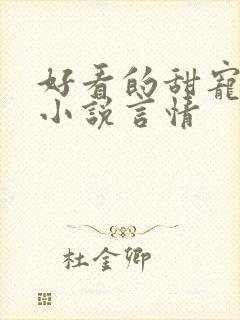 好看的甜宠
小说言情
杜金卿